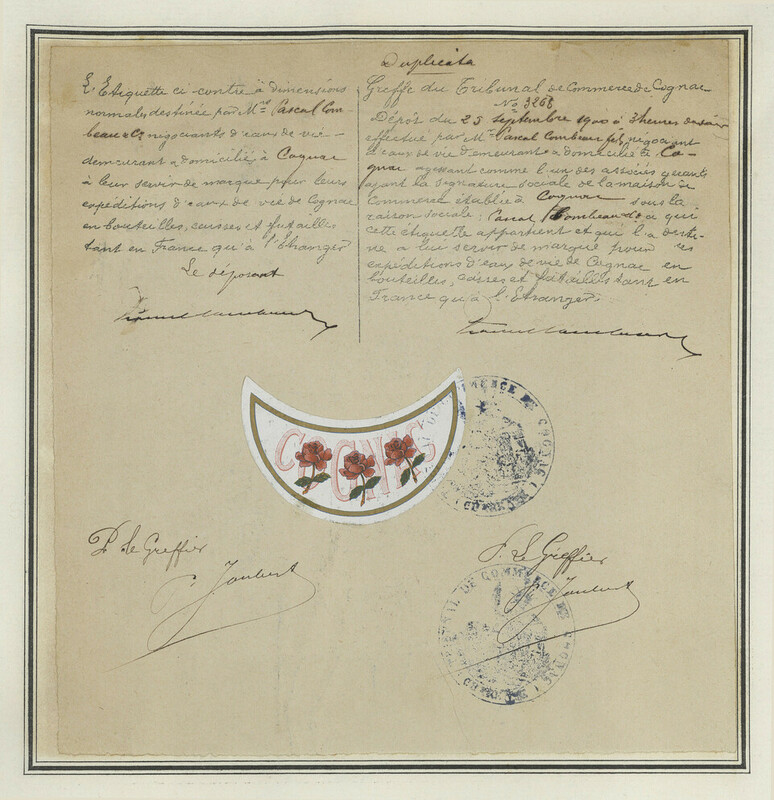 Duplicata
L'Etiquette ci-contre à dimensions
normales destinée par Mrs Pascal Com-
beau & Ce négociants d'eaux de vie
demeurant & domiciliés à Cognac
à leur servir de marque pour leurs
expéditions d'eaux de vie de Cognac
en bouteilles, caisses et futailles
tant en France qu'à l'Etranger
Le déposant
Greffe du Tribunal de Commerce de Cognac
No 3268
Dépôt du 25 septembre 1900 à 3 heures du soir
effectué par Mr Pascal Combeau fils, négociant
d'eaux de vie demeurant & domicilié à Co-
gnac agissant comme l'un des associés quants
ayant la signature sociale de la maison de
Commerce établie à Cognac sous la
raison sociale: Pascal Combeau & Ce à qui
cette étiquette appartient et qui l'a desti-
née à lui servir de marque pour ses
expéditions d'eaux de vie de Cognac en
bouteilles, caisses et futailles tant en
France qu'à l'Etranger
COGNAC
COMMERCE DE COGNAC
P. le Greffier
Joubert
P. Le Greffier
Joubert
TRIBUNAL DE COMMERCE DE COGNAC